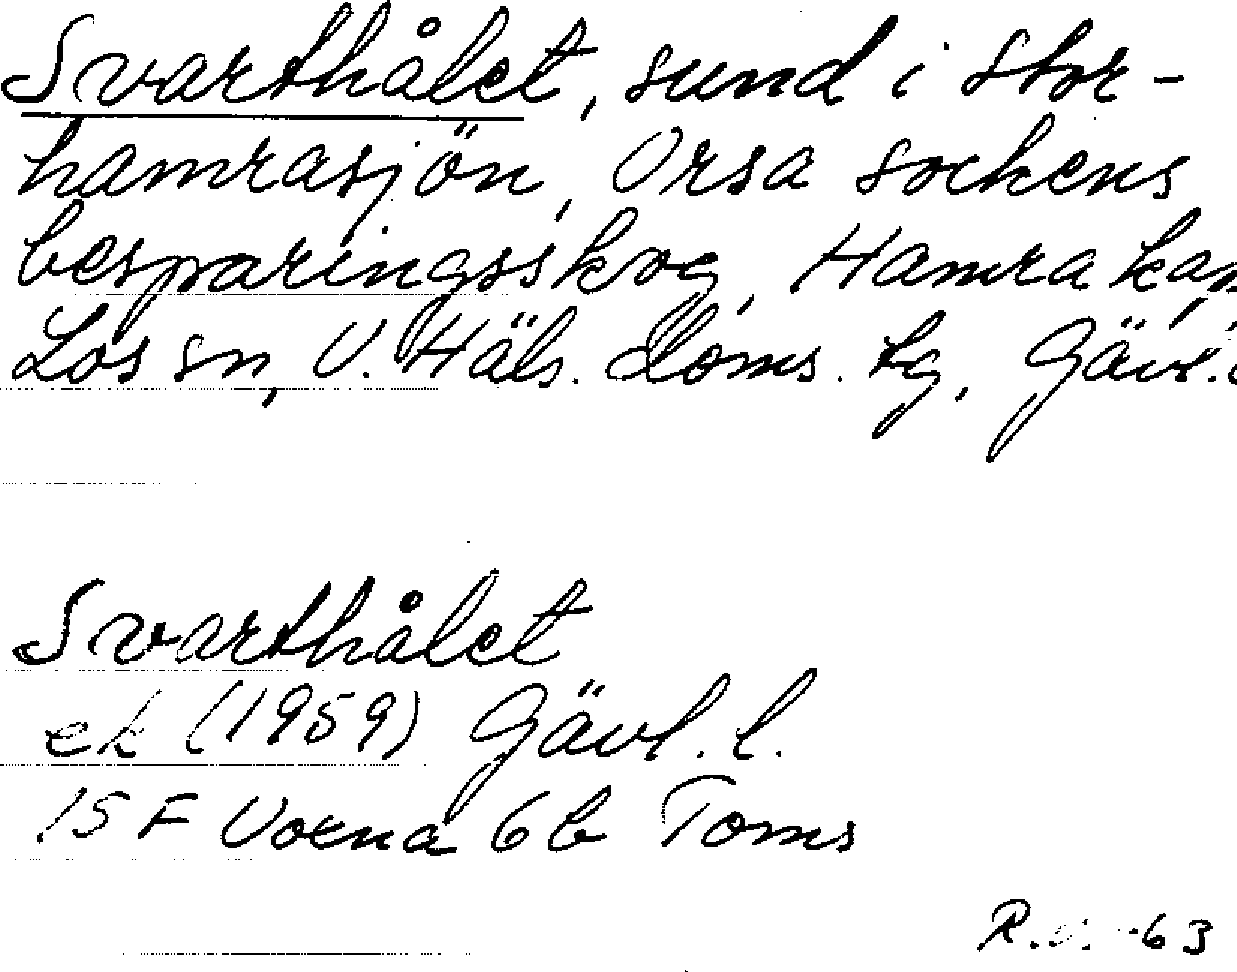 Svarthålet, sund i Stor-
hamrasjön, Orsa sockens
besparingsskog, Hamra kap,
Los sn, V. Häls. doms. tg, Gävl. l
Svarthålet
ek (1959) Gävl. l.
15 F Voxna 6b Toms
R. -63